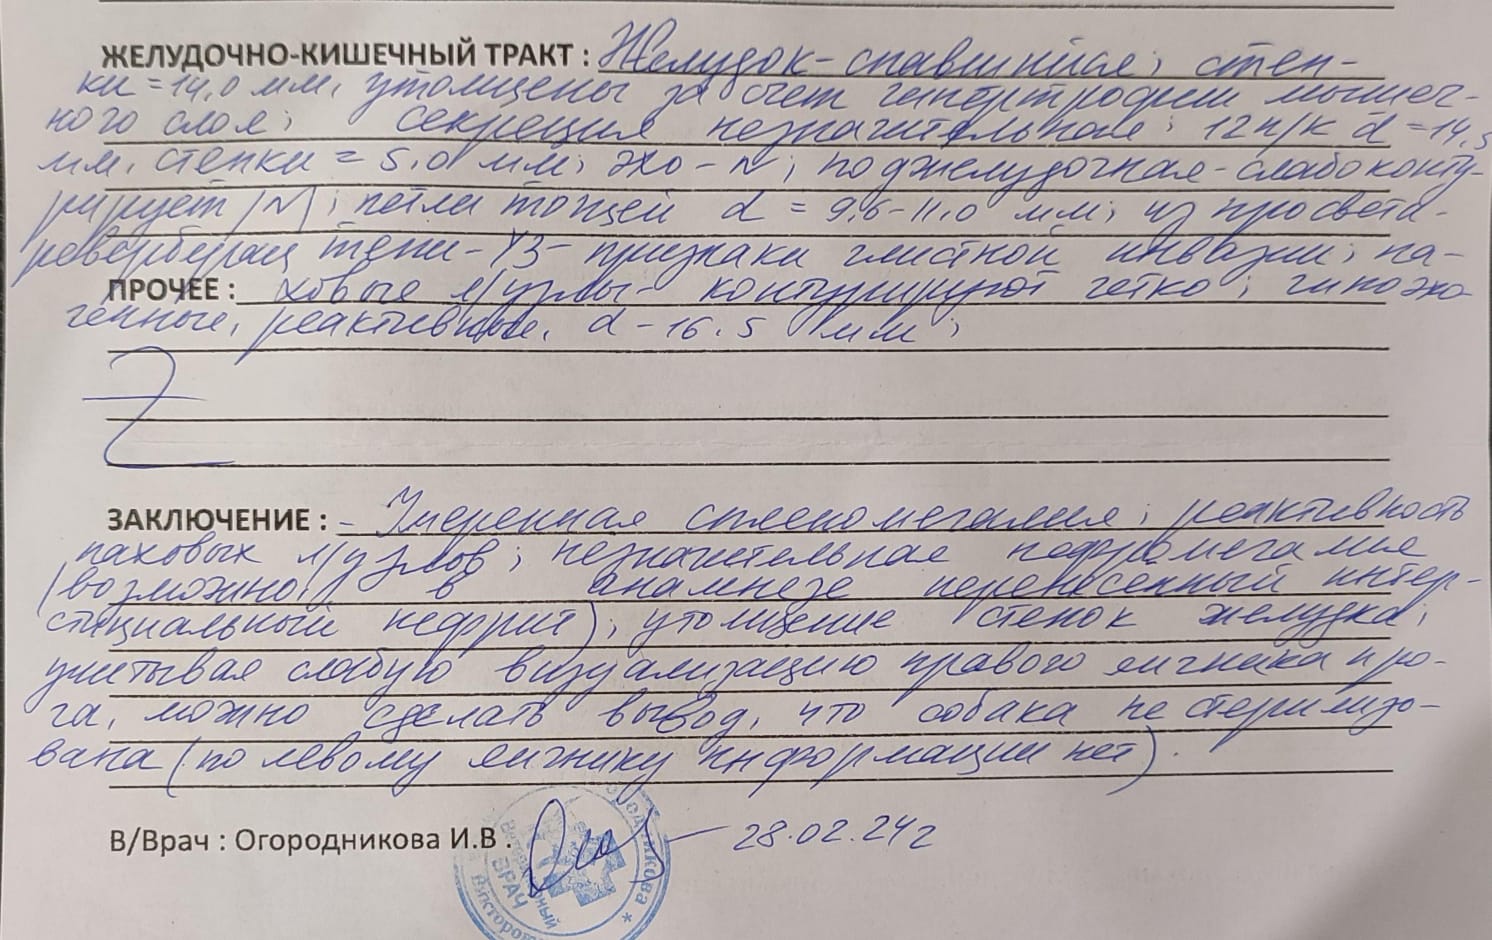 ЖЕЛУДОЧНО-КИШЕЧНЫЙ ТРАКТ : Желудок - спавшийся; стен-
ки = 14,0 мм, утолщены за счет гипертрофии мышеч-
ного слоя; секреция незначительная; 12 п/к d = 14,5
мм, стенки = 5,0 мм; эхо - N; поджелудочная - слабо конту-
рирует /N/; петли тощей d = 9,6-11,0 мм; из просвета -
ревербирац тени - УЗ - признаки глистной инвазии; па-
ПРОЧЕЕ : ховые л/узлы - контурируют четко; гипоэхо-
генные, реактивные, d - 16,5 мм;
Z
ЗАКЛЮЧЕНИЕ : - Умеренная спленомегалия; реактивность
паховых л/узлов; незначительная нефромегалия
(возможно, в анамнезе перенесенный интер-
стициальный нефрит); утолщение стенок желудка;
учитывая слабую визуализацию правого яичника и ро-
га, можно сделать вывод, что собака не стерилизо-
вана (по левому яичнику информации нет).
В/Врач : Огородникова И.В. 28.02.24г
Ветеринарный
ВРАЧ